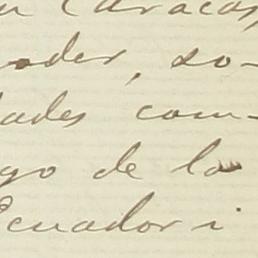 n Caracas,
oder, so-
dades com-
go de la
Ecuador i